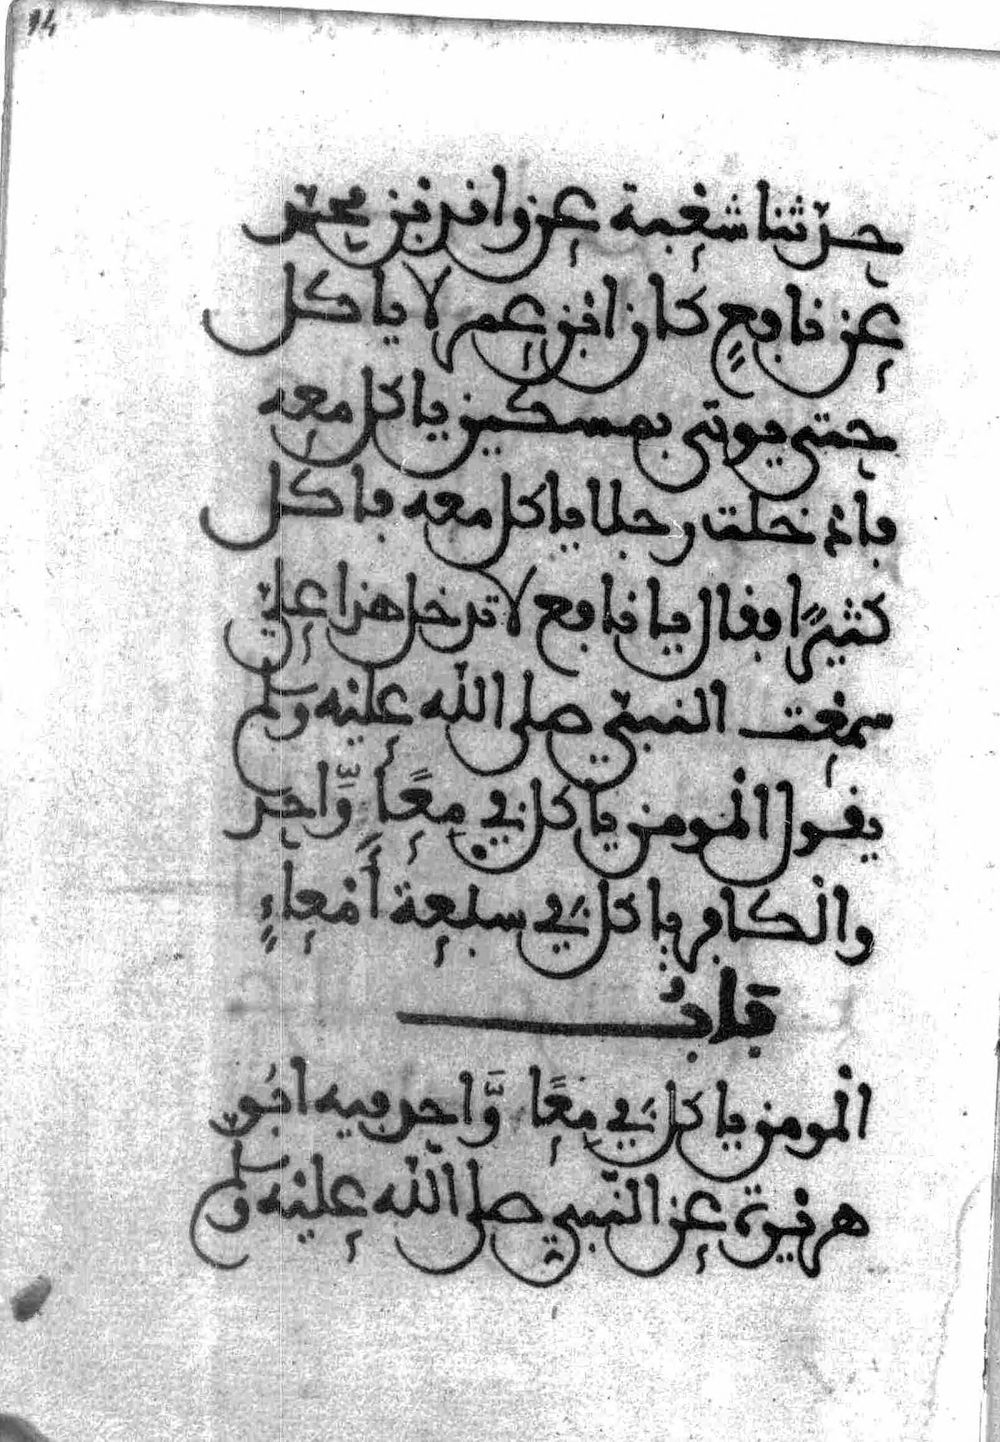 14
حدثنا شعبة عن واقد بن محمد
عن نافع كان ابن عمر لا ياكل
حتى يوتى بمسكين ياكل معه
فادخلت رجلا ياكل معه فاكل
كثيرًا فقال يا نافع لا تدخل هذا علي
سمعت النبي صلى الله عليه وسلم
يقول المومن ياكل في مِعًا وَّاحد
والكافر ياكل في سبعة أمعاءٍ
بابُ
المومن ياكل في مِعًا وَّاحد فيه ابو
هريرة عن النبي صلى الله عليه وسلم